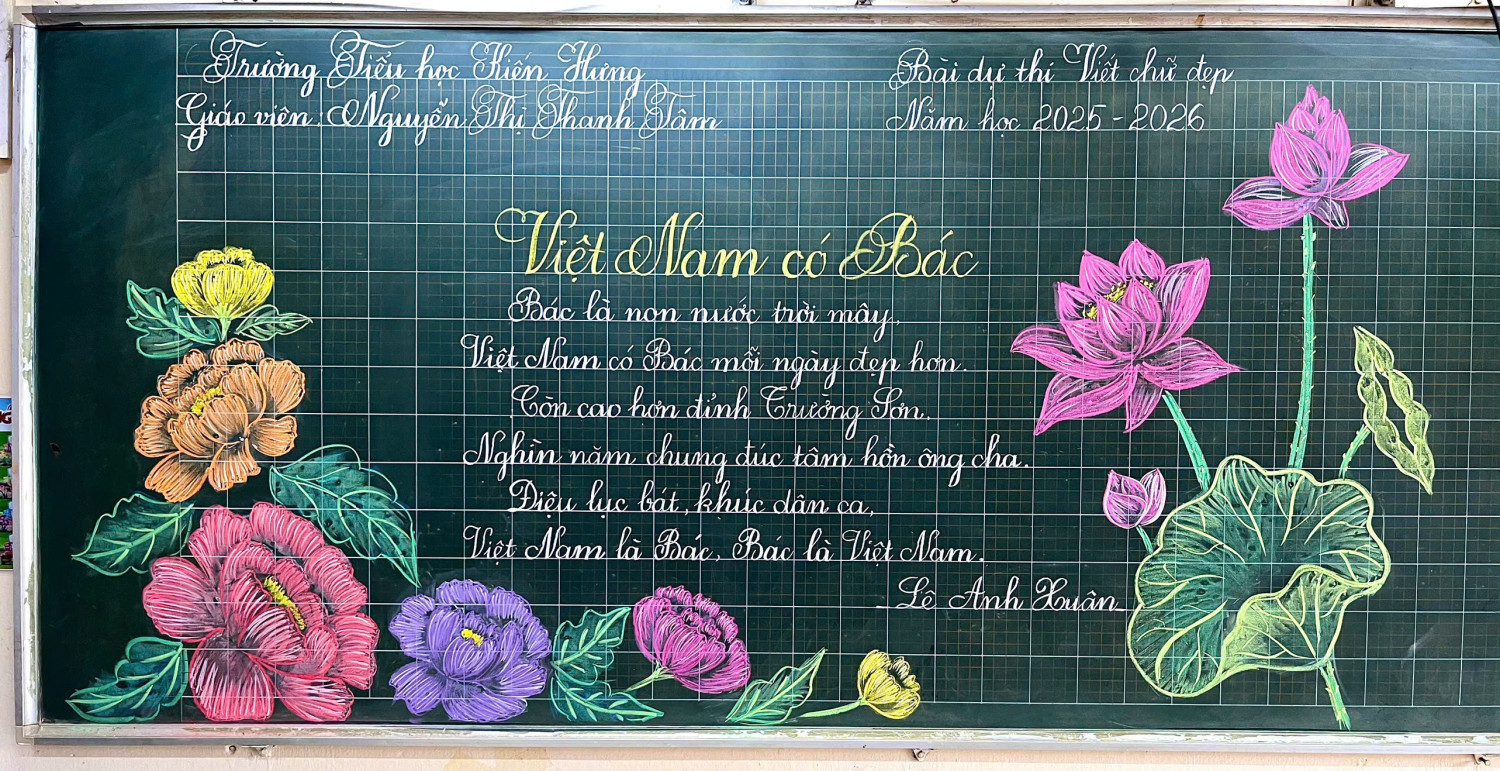 Trường Tiểu học Kiến Hưng
Giáo viên: Nguyễn Thị Thanh Tâm
Bài dự thi Viết chữ đẹp
Năm học 2025 - 2026
Việt Nam có Bác
Bác là non nước trời mây,
Việt Nam có Bác mỗi ngày đẹp hơn.
Còn cao hơn đỉnh Trường Sơn.
Nghìn năm chung đúc tâm hồn ông cha.
Điệu lục bát, khúc dân ca,
Việt Nam là Bác, Bác là Việt Nam.
Lê Anh Xuân